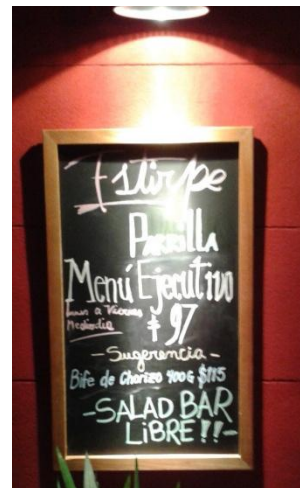 Estirpe
Parrilla
Menú Ejecutivo
Lunes a Viernes
Mediodia
$ 97
-Sugerencia-
Bife de Chorizo 400G $115
-SALAD BAR
LiBRE!!-